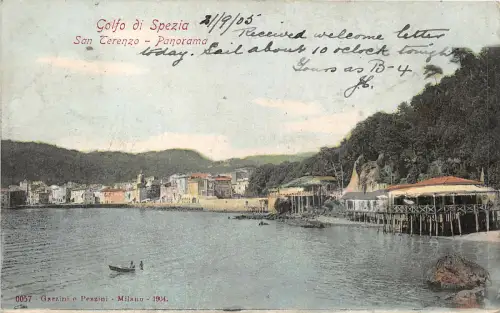 Golfo di Spezia
San Terenzo - Panorama
21/9/05
Received welcome letter
today. Sail about 10 oclock tonight
Yours as B-4
0057 - Garzini e Pezzini - Milano - 1904.